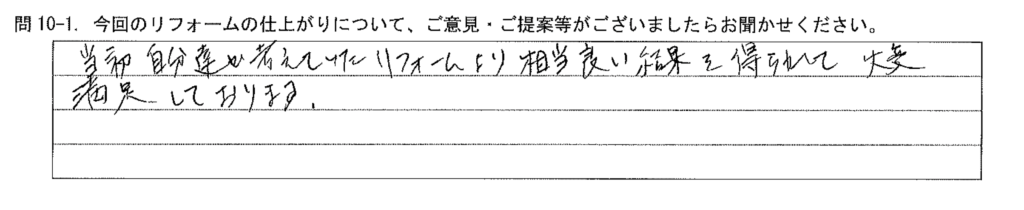 問10-1. 今回のリフォームの仕上がりについて、ご意見・ご提案等がございましたらお聞かせください。
当初 自分達が考えていたリフォームより相当良い結果を得られて 大変
満足しております。